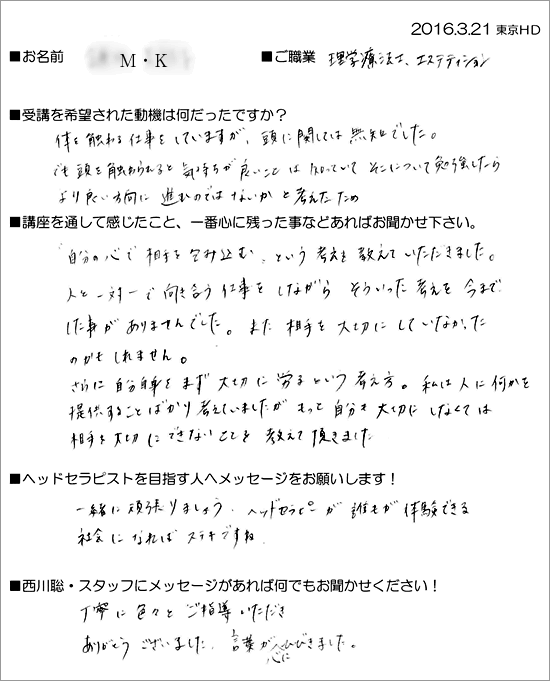 2016.3.21 東京HD
■お名前 M・K ■ご職業 理学療法士、エステティシャン
■受講を希望された動機は何だったですか？
体を触れる仕事をしていますが、頭に関しては無知でした。
でも頭を触られると気持ちが良いことは知っていて そこについて勉強したら
より良い方向に進むのではないかと考えたため
■講座を通して感じたこと、一番心に残った事などあればお聞かせ下さい。
「自分の心で相手を包み込む」という考えを教えていただきました。
人と一対一で向き合う仕事をしながら そういった考えを今まで
した事がありませんでした。また相手を大切にしていなかった
のかもしれません。
さらに自分自身をまず大切に労るという考え方。私は人に何かを
提供することばかり考えていましたが もっと自分を大切にしなくては
相手を大切にできないことを教えて頂きました
■ヘッドセラピストを目指す人へメッセージをお願いします！
一緒に頑張りましょう。ヘッドセラピーが誰もが体験できる
社会になればステキですね
■西川聡・スタッフにメッセージがあれば何でもお聞かせください！
丁寧に色々とご指導いただき
ありがとうございました。言葉が心にひびきました。